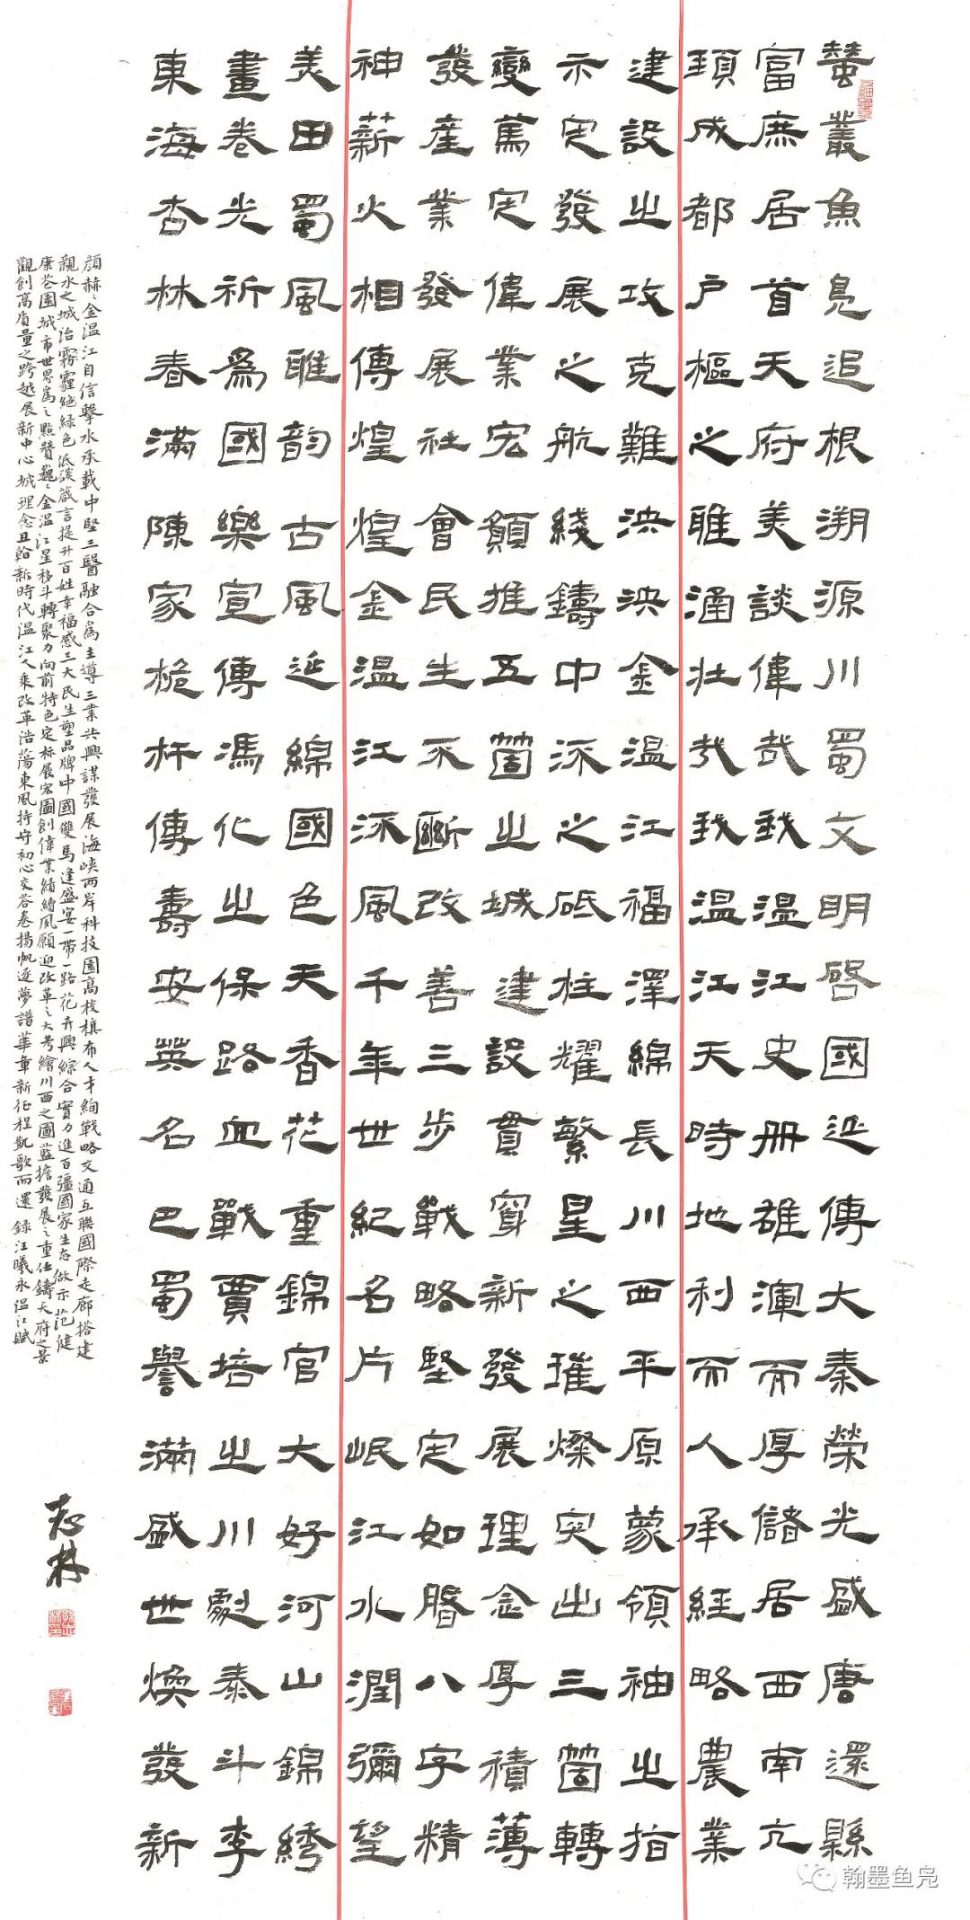 蠶叢魚鳧追根溯源川蜀文明啓國延傳大秦榮光盛唐還縣
富庶居首天府美談偉哉我温江史冊雄渾而厚儲居西南亢
成都戶樞之雅涵壯哉我温江天時地利而人承經略農業
建設之攻克難泱泱金温江福澤綿長川西平原蒙領袖之指
示定發展之航綫鑄中流之砥柱耀繁星之璀燦突出三箇轉
變篤定偉業宏願推五箇之城建設貫穿新發展理念厚積薄
發產業發展社會民生不斷改善三步戰略堅定如八字精
神薪火相傳煌煌金温江流風千年世紀名片岷江水潤彌望
美田蜀風雅韵古風延綿國色天香花重錦官大好河山錦綉
畫卷光祈為國樂宣傳馮化之保路血戰賈培之川劇泰斗李
東海杏林春滿陳家桅杆傳壽安英名巴蜀譽滿盛世煥發新
顏赫〻金温江自信擊水承載中堅三醫融合為主導三業共興謀發展海峽兩岸科技園高校布人才絢戰略交通互聯國際走廊搭建
親水之城治霧霾絕綠色低碳箴言提升百姓幸福感三大民生塑品牌中國雙馬逢盛宴一帶一路花卉興綜合實力進百疆國家生态做示范健
康花園城市世界為之點贊巍〻金温江星移斗轉聚力向前特色定标展宏圖創偉業績夙願迎改革之大考繪川西之圖藍擔發展之重任鑄天府之景
觀創高質量之跨越展新中心城理念且新時代温江人乘改革浩蕩東風持守初心交答卷揚帆逐夢譜華章新征程凱歌而還 錄江曦永温江賦
志林
翰墨鱼凫